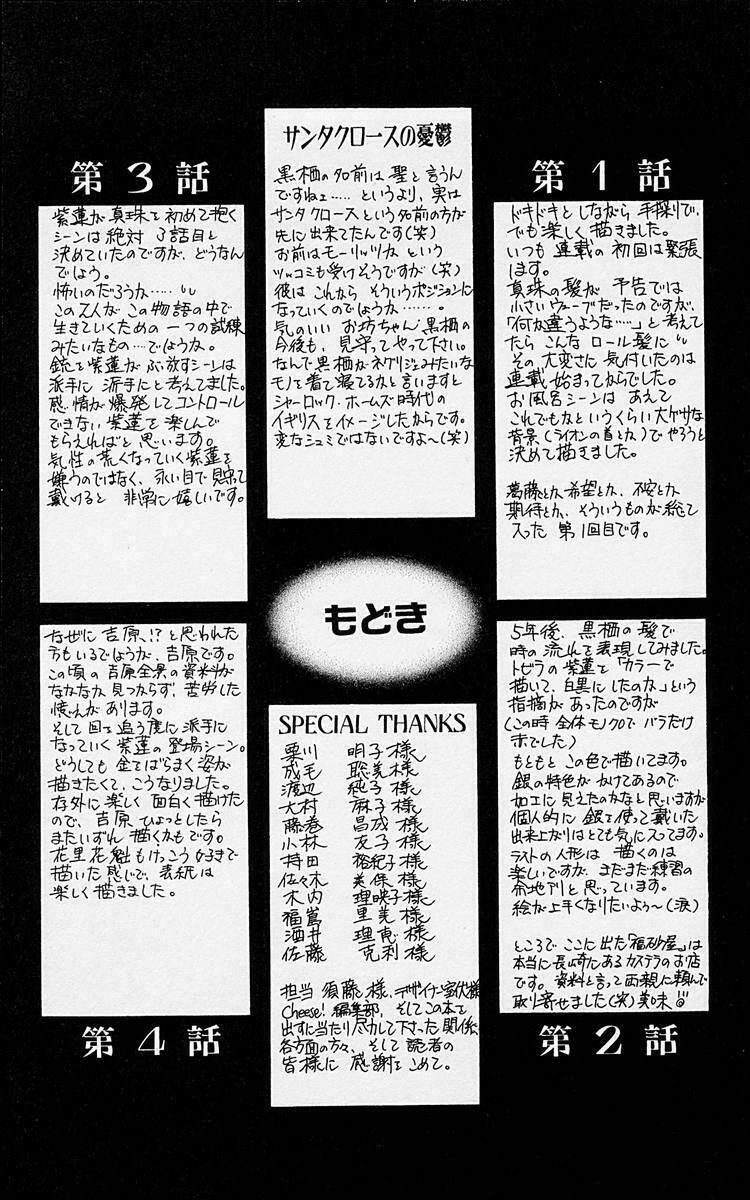 第1話
ドキドキとしながら手探りで、
でも楽しく描きました。
いつも連載の初回は緊張
します。
真珠の髪が予告では
小さいウェーブだったのですが、
「何か違うような……」と考えて
たらこんなロール髪に
その大変さに気付いたのは
連載始まってからでした。
お風呂シーンはあえて
これでもなというくらい大ゲサな
背景(ライオンの首とか)でやろうと
決めて描きました。
葛藤とか、希望とか、不安とか
期待とか、そういうものが総て
入った第1回目です。
サンタクロースの憂鬱
黒栖の名前は聖と言うん
ですねェ……というより、実は
サンタクロースという名前の方が
先に出来てたんです(笑)
お前はモーリッツか という
ツッコミも受けそうですが(笑)
彼はこれからそういうポジションに
なっていくのでしょうか……。
気のいいお坊ちゃん、黒栖の
今後も、見守ってやって下さい。
なんで黒栖がネグリジェみたいな
モノを着て寝てるかと言いますと
シャーロック・ホームズ時代の
イギリスをイメージしたからです。
変なシュミではないですよ〜(笑)
第3話
紫蓮が真珠を初めて抱く
シーンは絶対3話目と
決めていたのですが、どうなん
でしょう。
怖いのだろうか……
この2人がこの物語の中で
生きていくための一つの試練
みたいなもの…でしょうか。
銃を紫蓮がぶっ放すシーンは
派手に派手にと考えてました。
感情が爆発してコントロール
できない紫蓮を楽しんで
もらえればと思います。
気性の荒くなっていく紫蓮を
嫌うのではなく、永い目で見守って
戴けると非常に嬉しいです。
もどき
5年後、黒栖の髪で
時の流れを表現してみました。
トビラの紫蓮を「カラーで
描いて、白黒にしたのか」という
指摘があったのですが
(この時全体モノクロでバラだけ
赤でした)
もともとこの色で描いてます。
銀の特色がかけてあるので
加工に見えたのかなと思いますが
個人的に銀を使って戴いた
出来上がりはとても気に入ってます。
ラストの人形は描くのは
楽しいですが、まだまだ練習の
余地アリと思っています。
絵が上手くなりたいよう〜(涙)
ところでここに出た「福砂屋」は
本当に長崎にあるカステラのお店
です。資料と言って両親に頼んで
取り寄せました(笑)美味
第2話
SPECIAL THANKS
栗川 明子様
成毛 聡美様
渡辺 純子様
大村 麻子様
藤巻 昌成様
小林 友子様
持田 裕紀子様
佐々木 美保様
木内 理映子様
福嶌 里美様
酒井 理恵様
佐藤 克利様
担当 須藤様、デザイナー室伏様
Cheese!編集部、そしてこの本を
出すに当たり尽力して下さった関係
各方面の方々、そして読者の
皆様に感謝をこめて。
なぜに吉原、!?と思われた
方もいるでしょうが、吉原です。
この頃の吉原全景の資料が
なかなか見つからず、苦労した
憶えがあります。
そして回を追う度に派手に
なっていく紫蓮の登場シーン。
どうしても金をばらまく姿が
描きたくて、こうなりました。
存外に楽しく面白く描けた
ので、吉原ひょっとしたら
またいずれ描くかもです。
花里花魁もけっこう好きで
描いた感じで、表紙は
楽しく描きました。
第4話